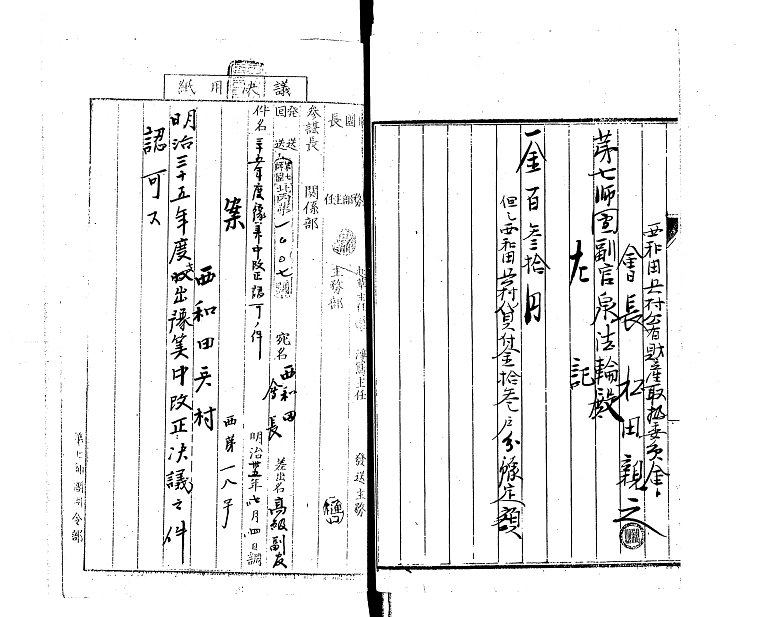 西和田兵村公有財産取扱委員会
會長 松田親之
第七師団副官泉法輪殿
左記
一金百叁拾円
但シ西和田兵村貸付金拾叁戸分豫定額
議決用紙
団長
参謀長
関係部
主務部
発送主務
第一〇〇七號
件名 三十五年度豫算中改正認可ノ件
宛名 西和田會長
差出名 高級副官
明治卅五年 月四日調
案
西第一八号
西和田兵村
明治三十五年度歳出豫算中改正決議之件
認可ス
第七師団司令部